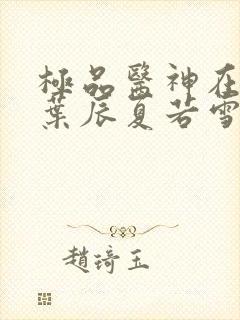 極品醫神在
葉辰夏若雪
趙琦玉